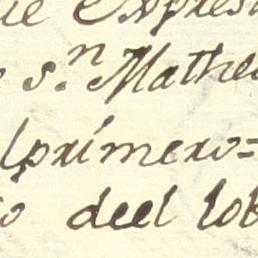 ue Expres
s.n Mathe
lprimero=
o deel lob